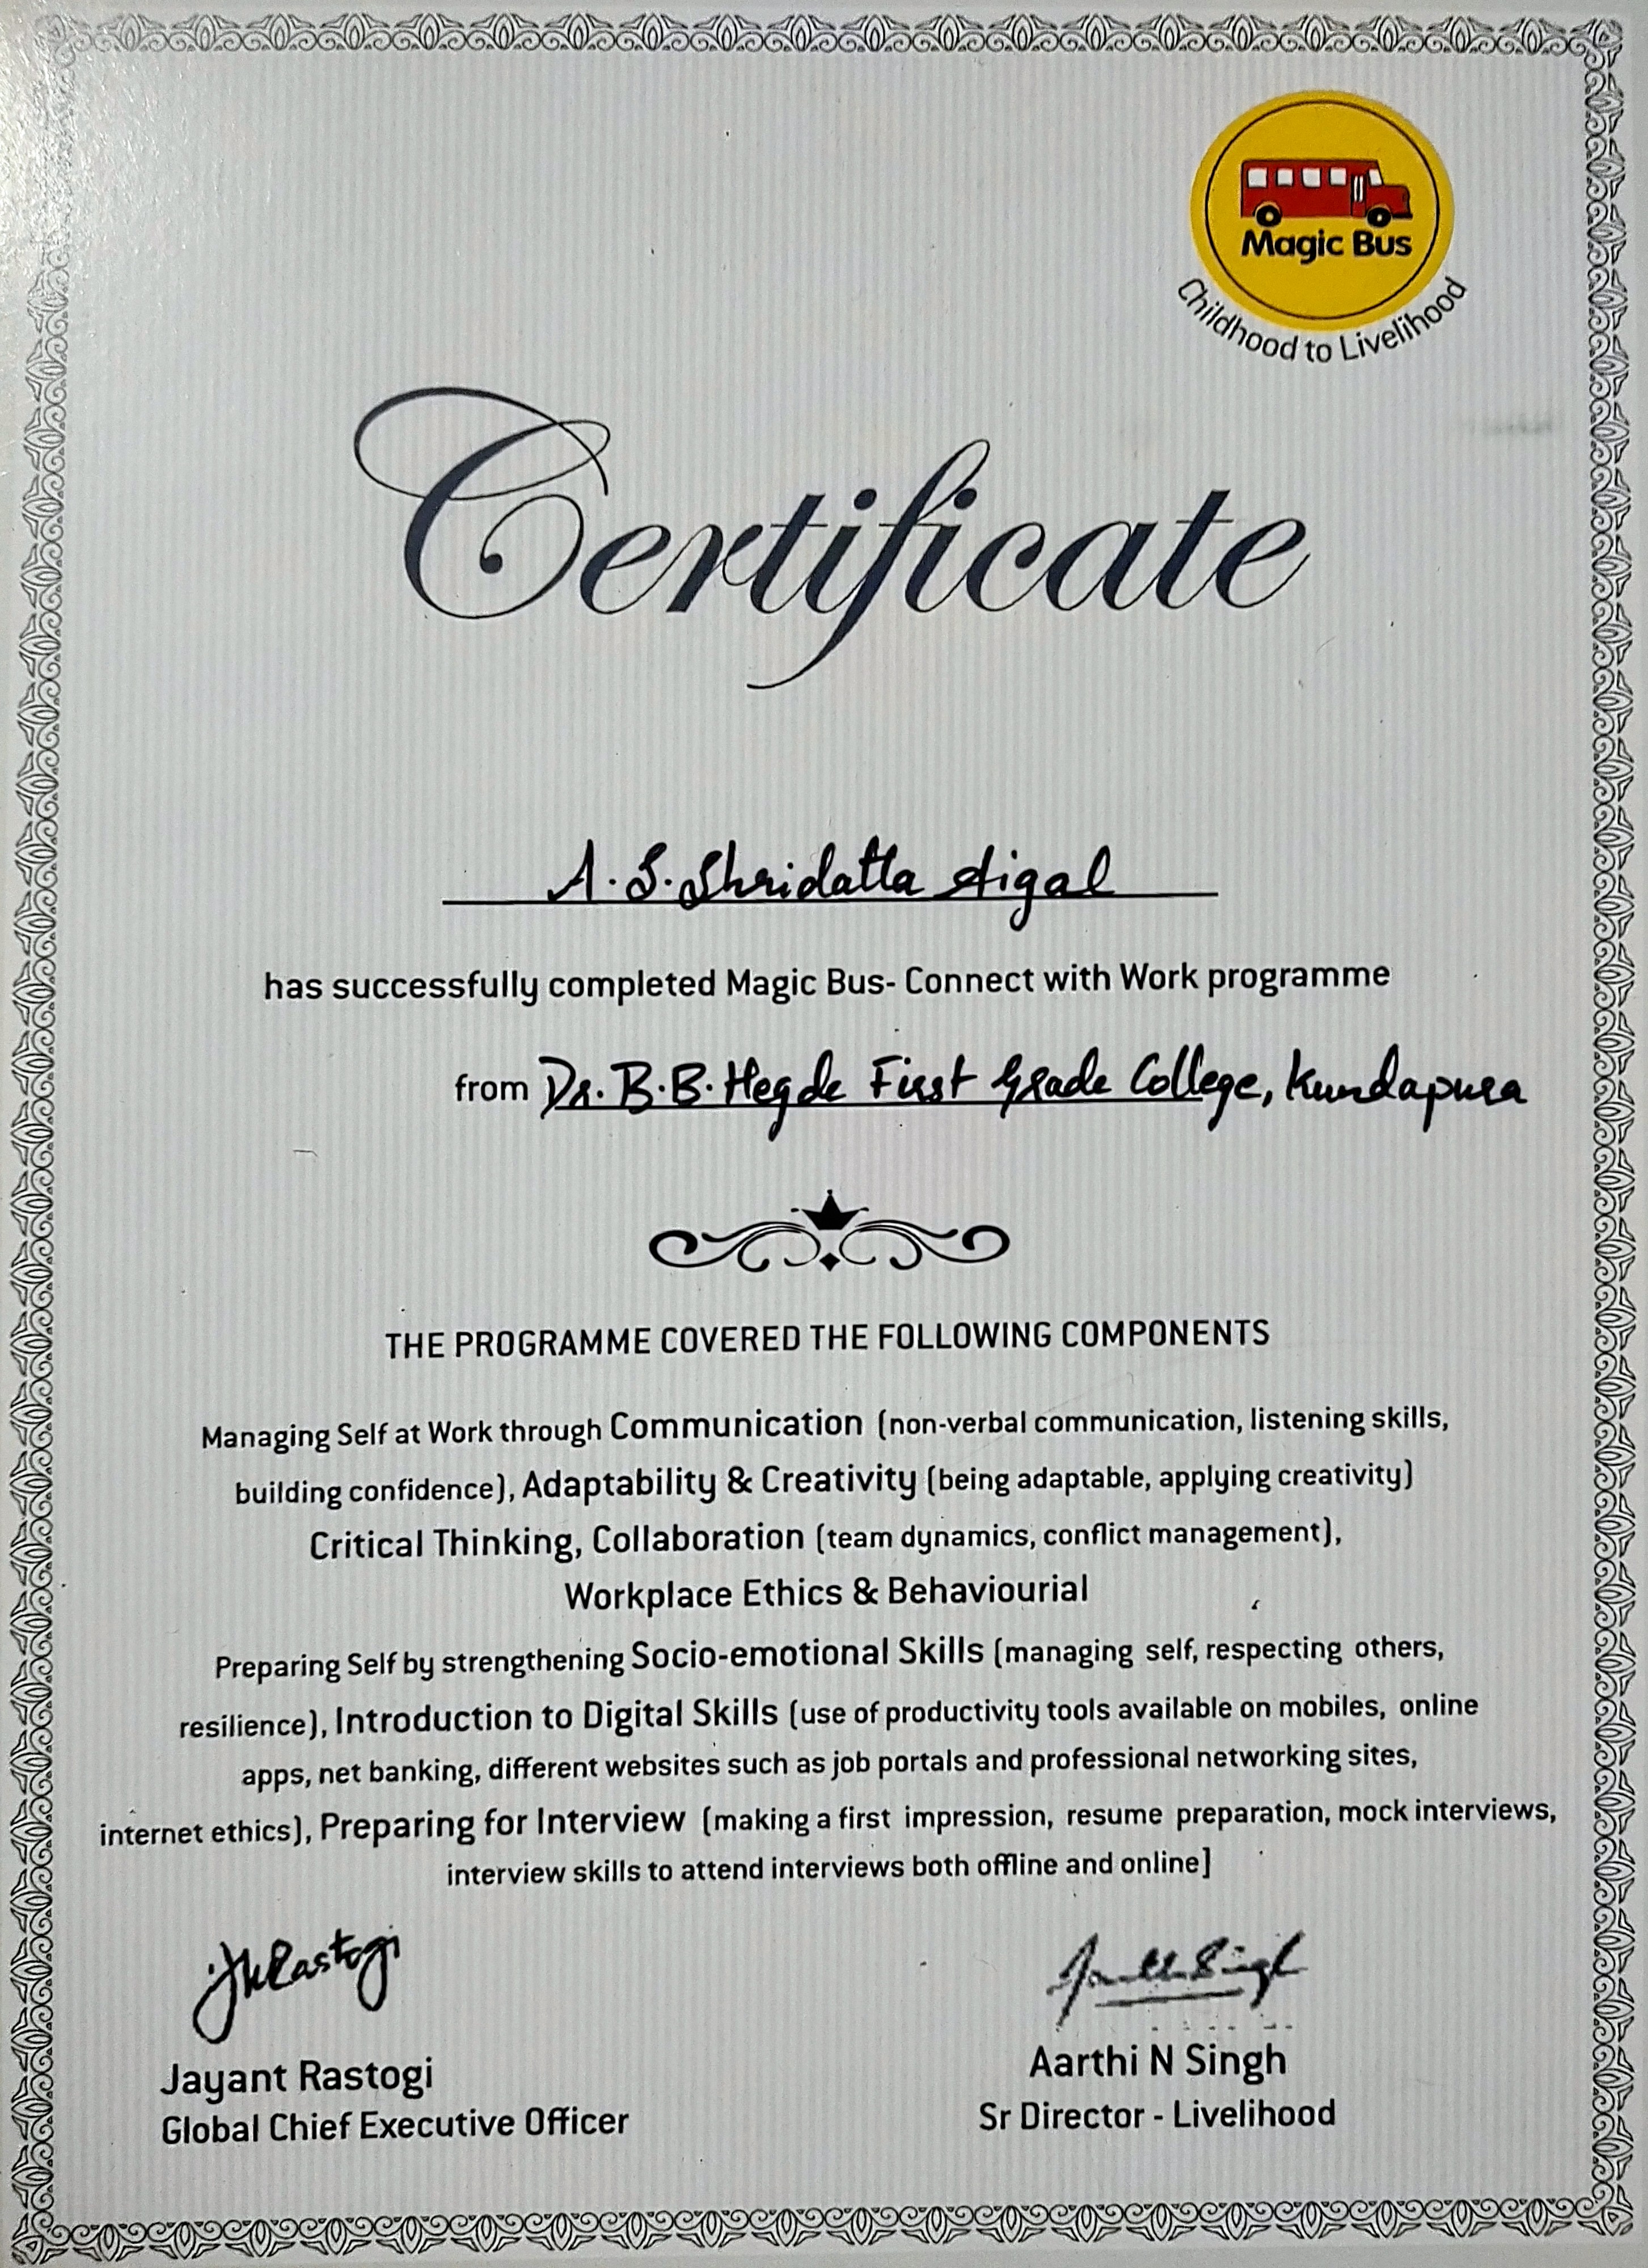 Magic Bus
Childhood to Livelihood
Certificate
A. S. Shridatta Aigal
has successfully completed Magic Bus- Connect with Work programme
from Dr. B.B. Hegde First Grade College, Kundapura
THE PROGRAMME COVERED THE FOLLOWING COMPONENTS
Managing Self at Work through Communication (non-verbal communication, listening skills,
building confidence), Adaptability & Creativity (being adaptable, applying creativity)
Critical Thinking, Collaboration (team dynamics, conflict management),
Workplace Ethics & Behaviourial
Preparing Self by strengthening Socio-emotional Skills (managing self, respecting others,
resilience), Introduction to Digital Skills (use of productivity tools available on mobiles, online
apps, net banking, different websites such as job portals and professional networking sites,
internet ethics), Preparing for Interview (making a first impression, resume preparation, mock interviews,
interview skills to attend interviews both offline and online]
JKRastogi
Jayant Rastogi
Global Chief Executive Officer
Aarthi N Singh
Sr Director - Livelihood